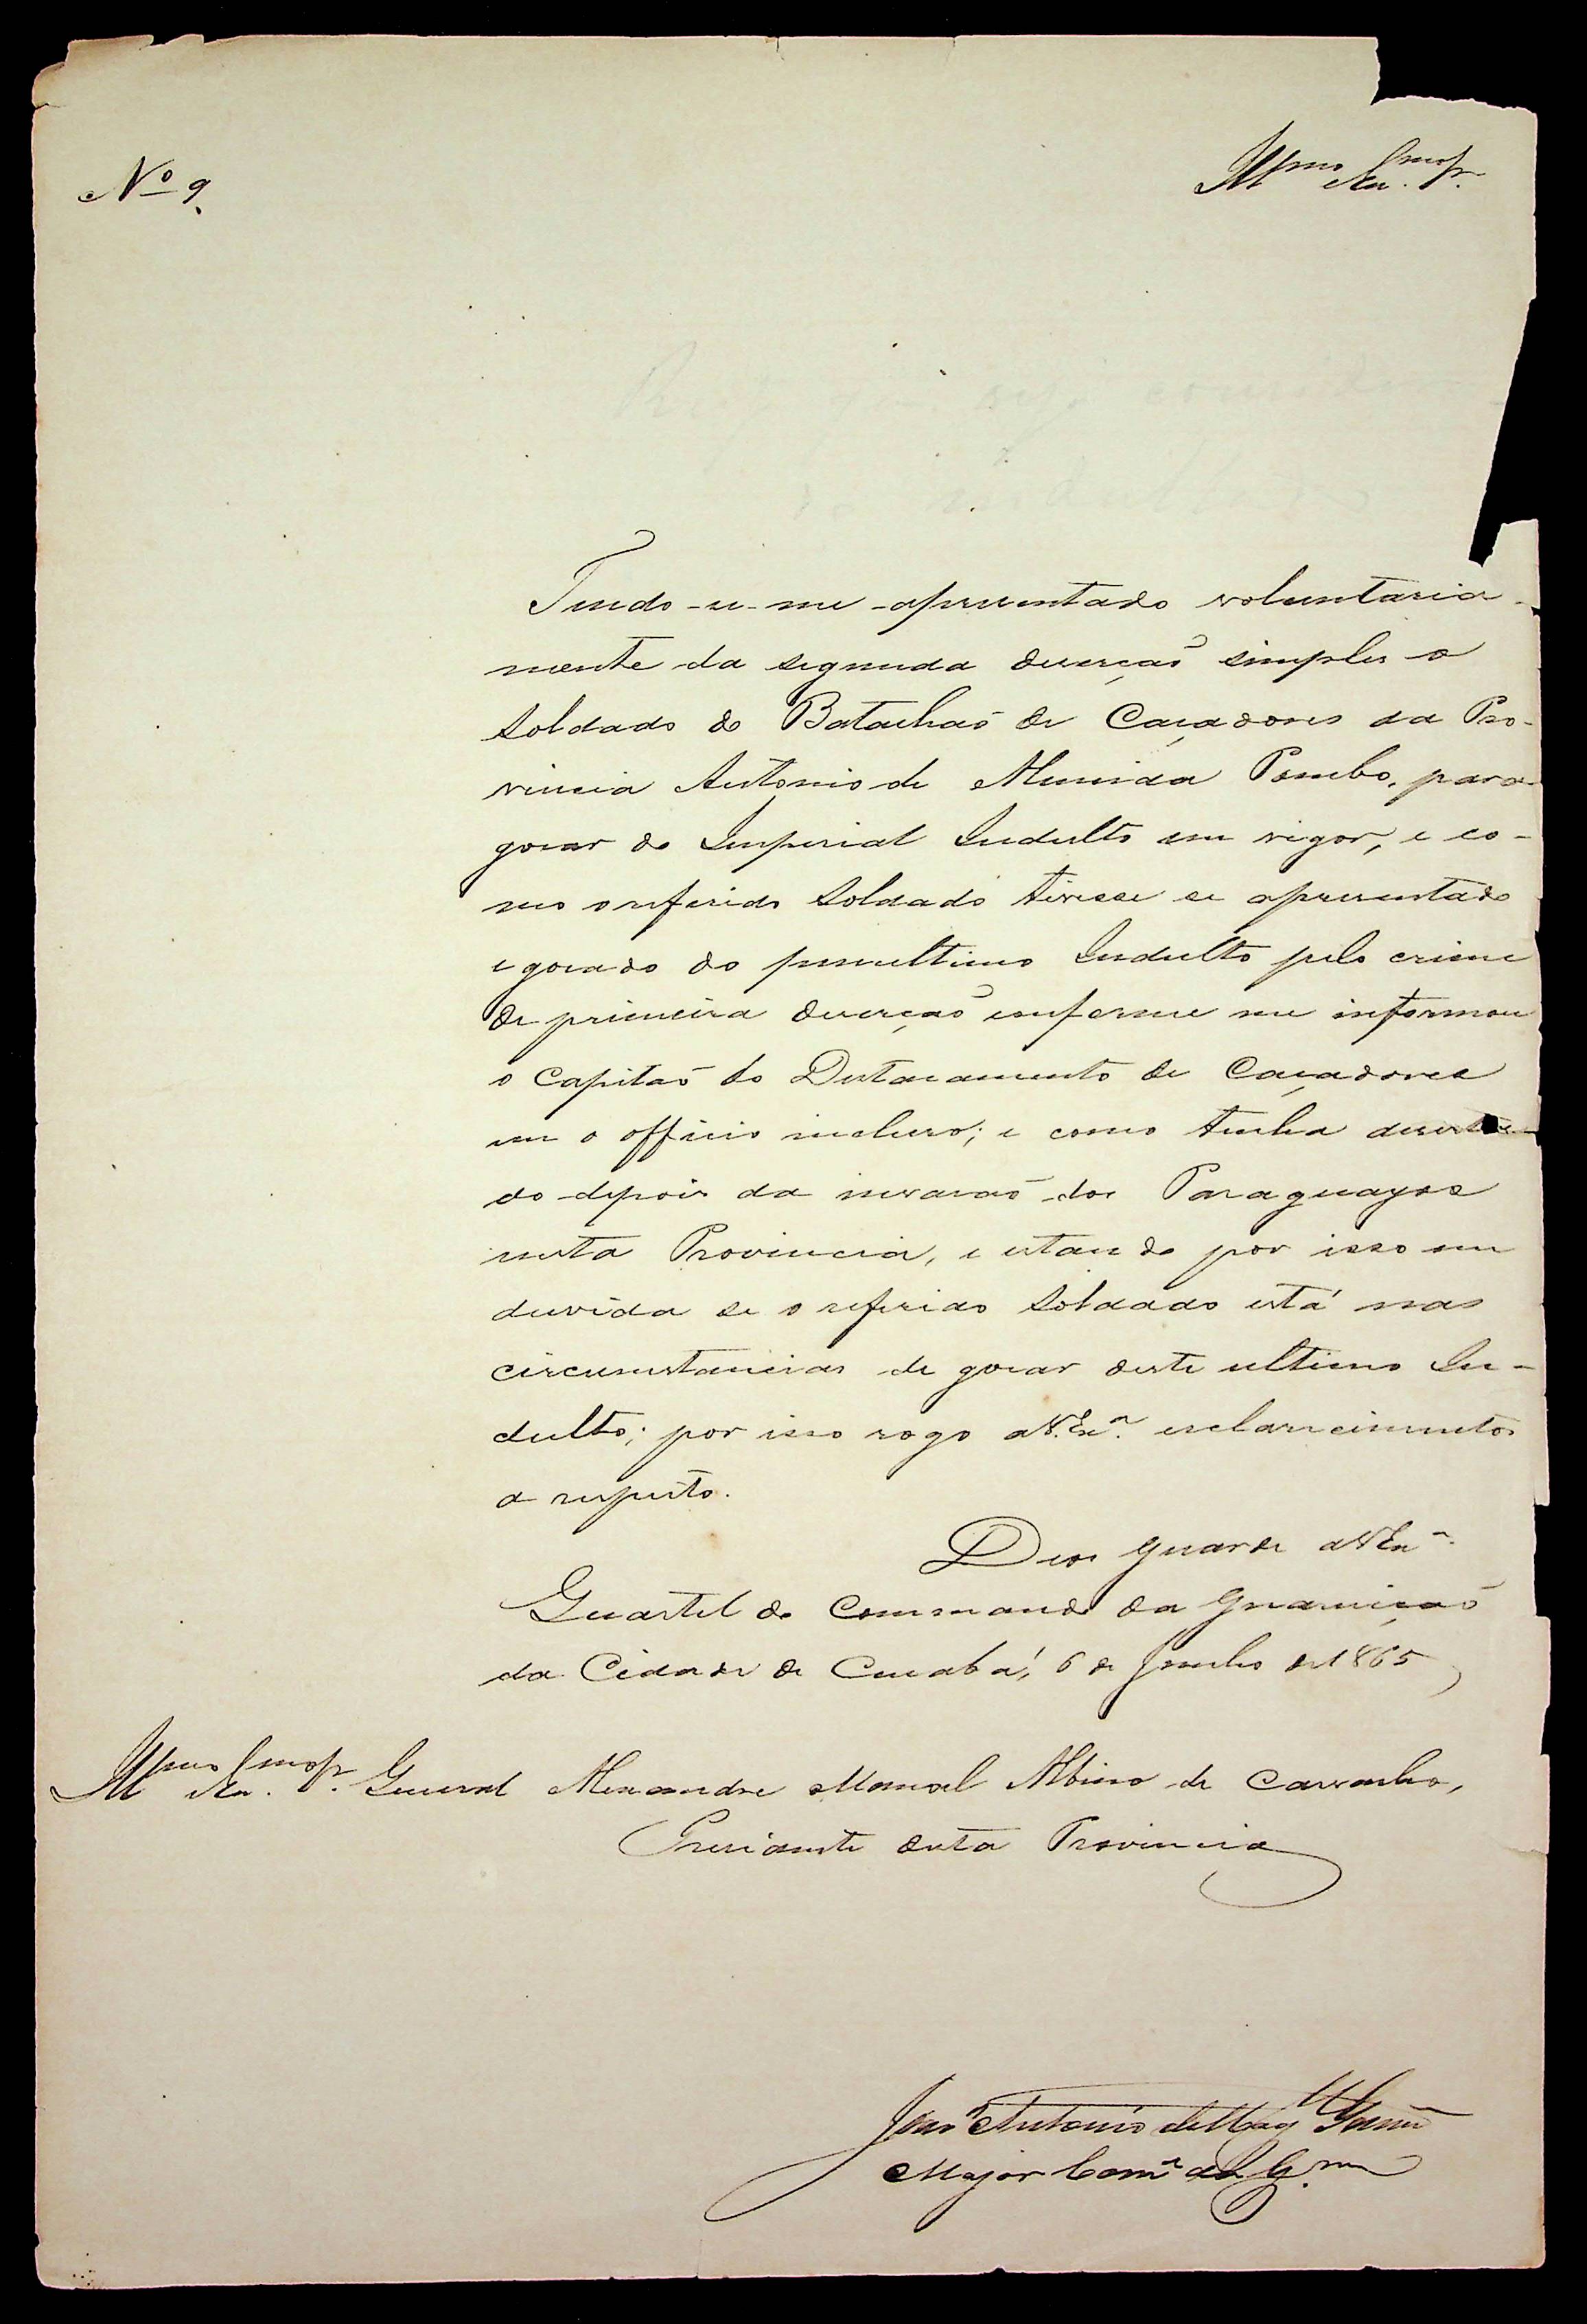 Nº 9
Illmo Exmo Sr.
Tendo-se-me-apresentado voluntaria-
mente da segunda deserçaõ simples o
Soldado do Batalhaõ de Caçadores da Pro-
vincia Antonio de Almeida Pombo, para
gosar do Imperial Indulto em vigor, e co-
mo o referido Soldado tivesse se apresentado
e gosado do penultimo Indulto pelo crime
de primeira deserçaõ conforme me informou
o Capitaõ do Destacamento de Caçadores
em o officio incluso; e como tenha deserta-
do depois da invasaõ dos Paraguayos
nesta Provincia, e estando por isso em
duvida se o referido Soldado está nas
circunstancias de gosar deste ultimo In-
dulto; por isso rogo a V. Exª. esclarecimentos
a respeito.
Deos guarde a V Exª.
Quartel do Commando da Guarniçaõ
da Cidade de Cuiabá, 6 de Junho de 1865
Illmo Exmo Sr. General Alexandre Manoel Albino de Carvalho,
Presidente desta Provincia
Antonio de
Major Come da Gam